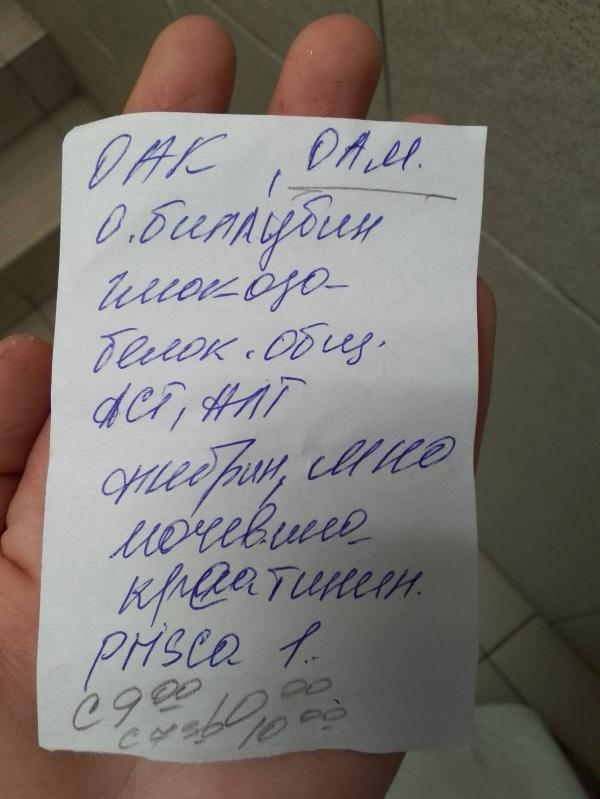 ОАК, ОАМ.
О. билирубин
глюкоза
белок. общ.
АСТ, АЛТ
фибрин, МНО
мочевина
креатинин.
с 9 00 10 00
с 7 30 10 00